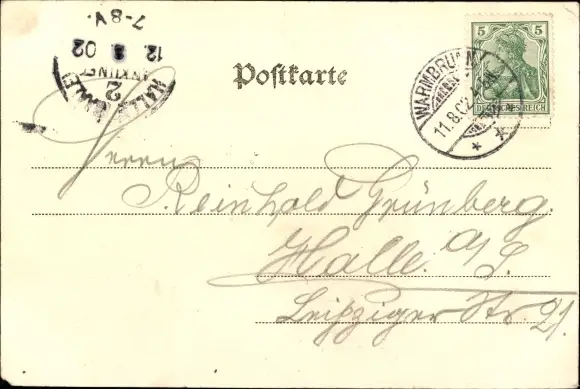 7-8V.
12 8 02
ANKUNFT
2
HALLE
Postkarte
5 5
DEUTSCHES REICH
WARMBRUNN
11.8.02.
* *
Herrn
Reinhold Grünberg.
Halle. a/S.
Leipziger Str. 21.